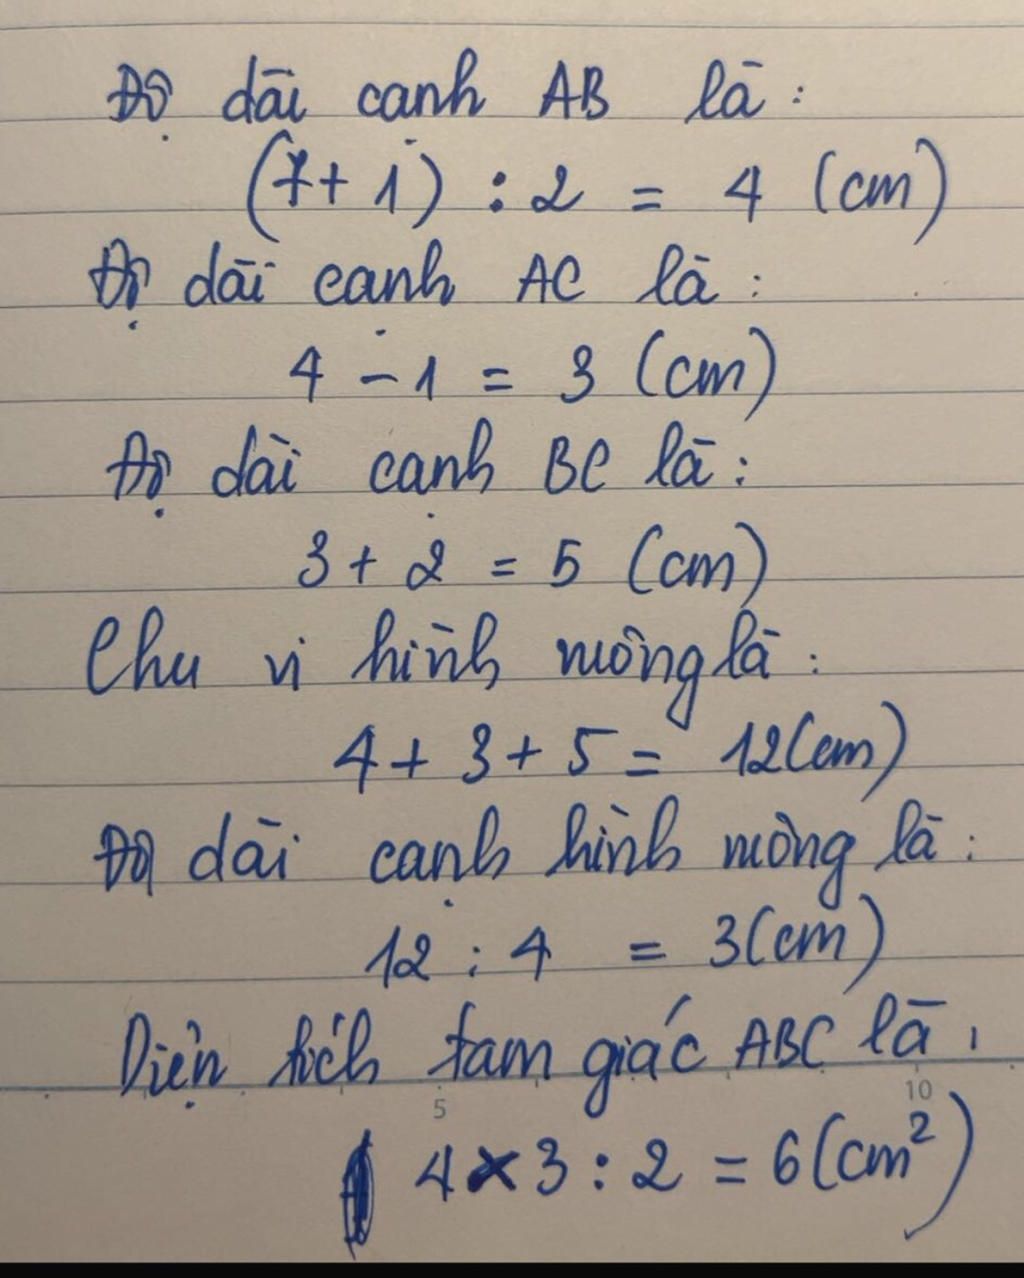 Độ dài cạnh AB là :
(7 + 1) : 2 = 4 (cm)
Độ dài cạnh AC là :
4 - 1 = 3 (cm)
Độ dài cạnh BC là :
3 + 2 = 5 (cm)
Chu vi hình vuông là :
4 + 3 + 5 = 12 (cm)
Độ dài cạnh hình vuông là :
12 : 4 = 3 (cm)
Diện tích tam giác ABC là :
5 10
4 x 3 : 2 = 6 (cm²)